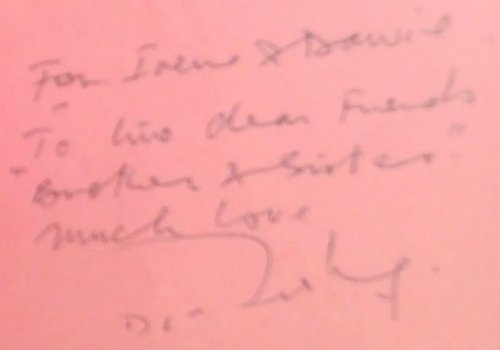 For Irene &
"To two dear Friends
"Brother & Sister"
much love
Dr